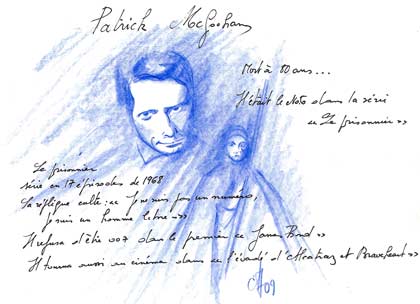 Patrick McGoohan
Mort à 80 ans...
Il était le héros dans la série
« Le prisonnier »
Le prisonnier
série en 17 épisodes de 1968
La réplique culte : « Je ne suis pas un numéro,
je suis un homme libre »
Il refusa d'être 007 dans le premier « James Bond »
Il tourna aussi au cinéma dans « l'évadé d'Alcatraz et Braveheart »
09